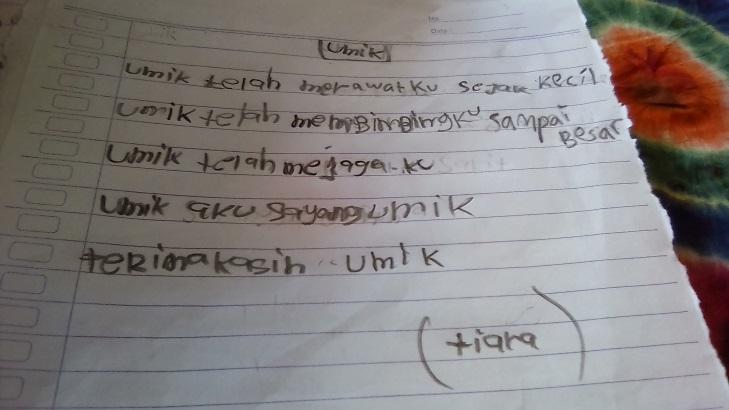 No
Date
(Umik)
Umik telah merawatku sejak kecil
Umik telah membimbingku sampai Besar
Umik telah menjaga-ku
Umik aku sayang umik
teRimakasih.. umik
(tiara)